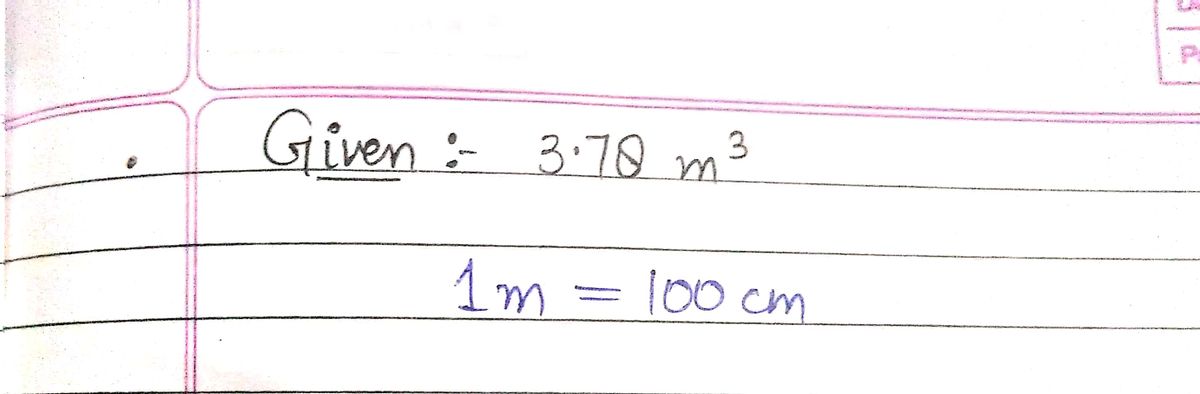 Given :- 3.78 m³
1m = 100 cm